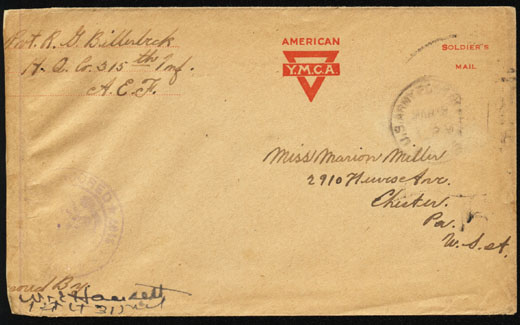 Pvt. R. G. Billerbeck
H. Q. Co. 315th Inf.
A. E. F.
AMERICAN
Y.M.C.A.
SOLDIER'S
MAIL
U.S. ARMY
Miss Marion Miller
2910 Ave.
Chester.
Pa.
U. S. A.
By
1st Lt